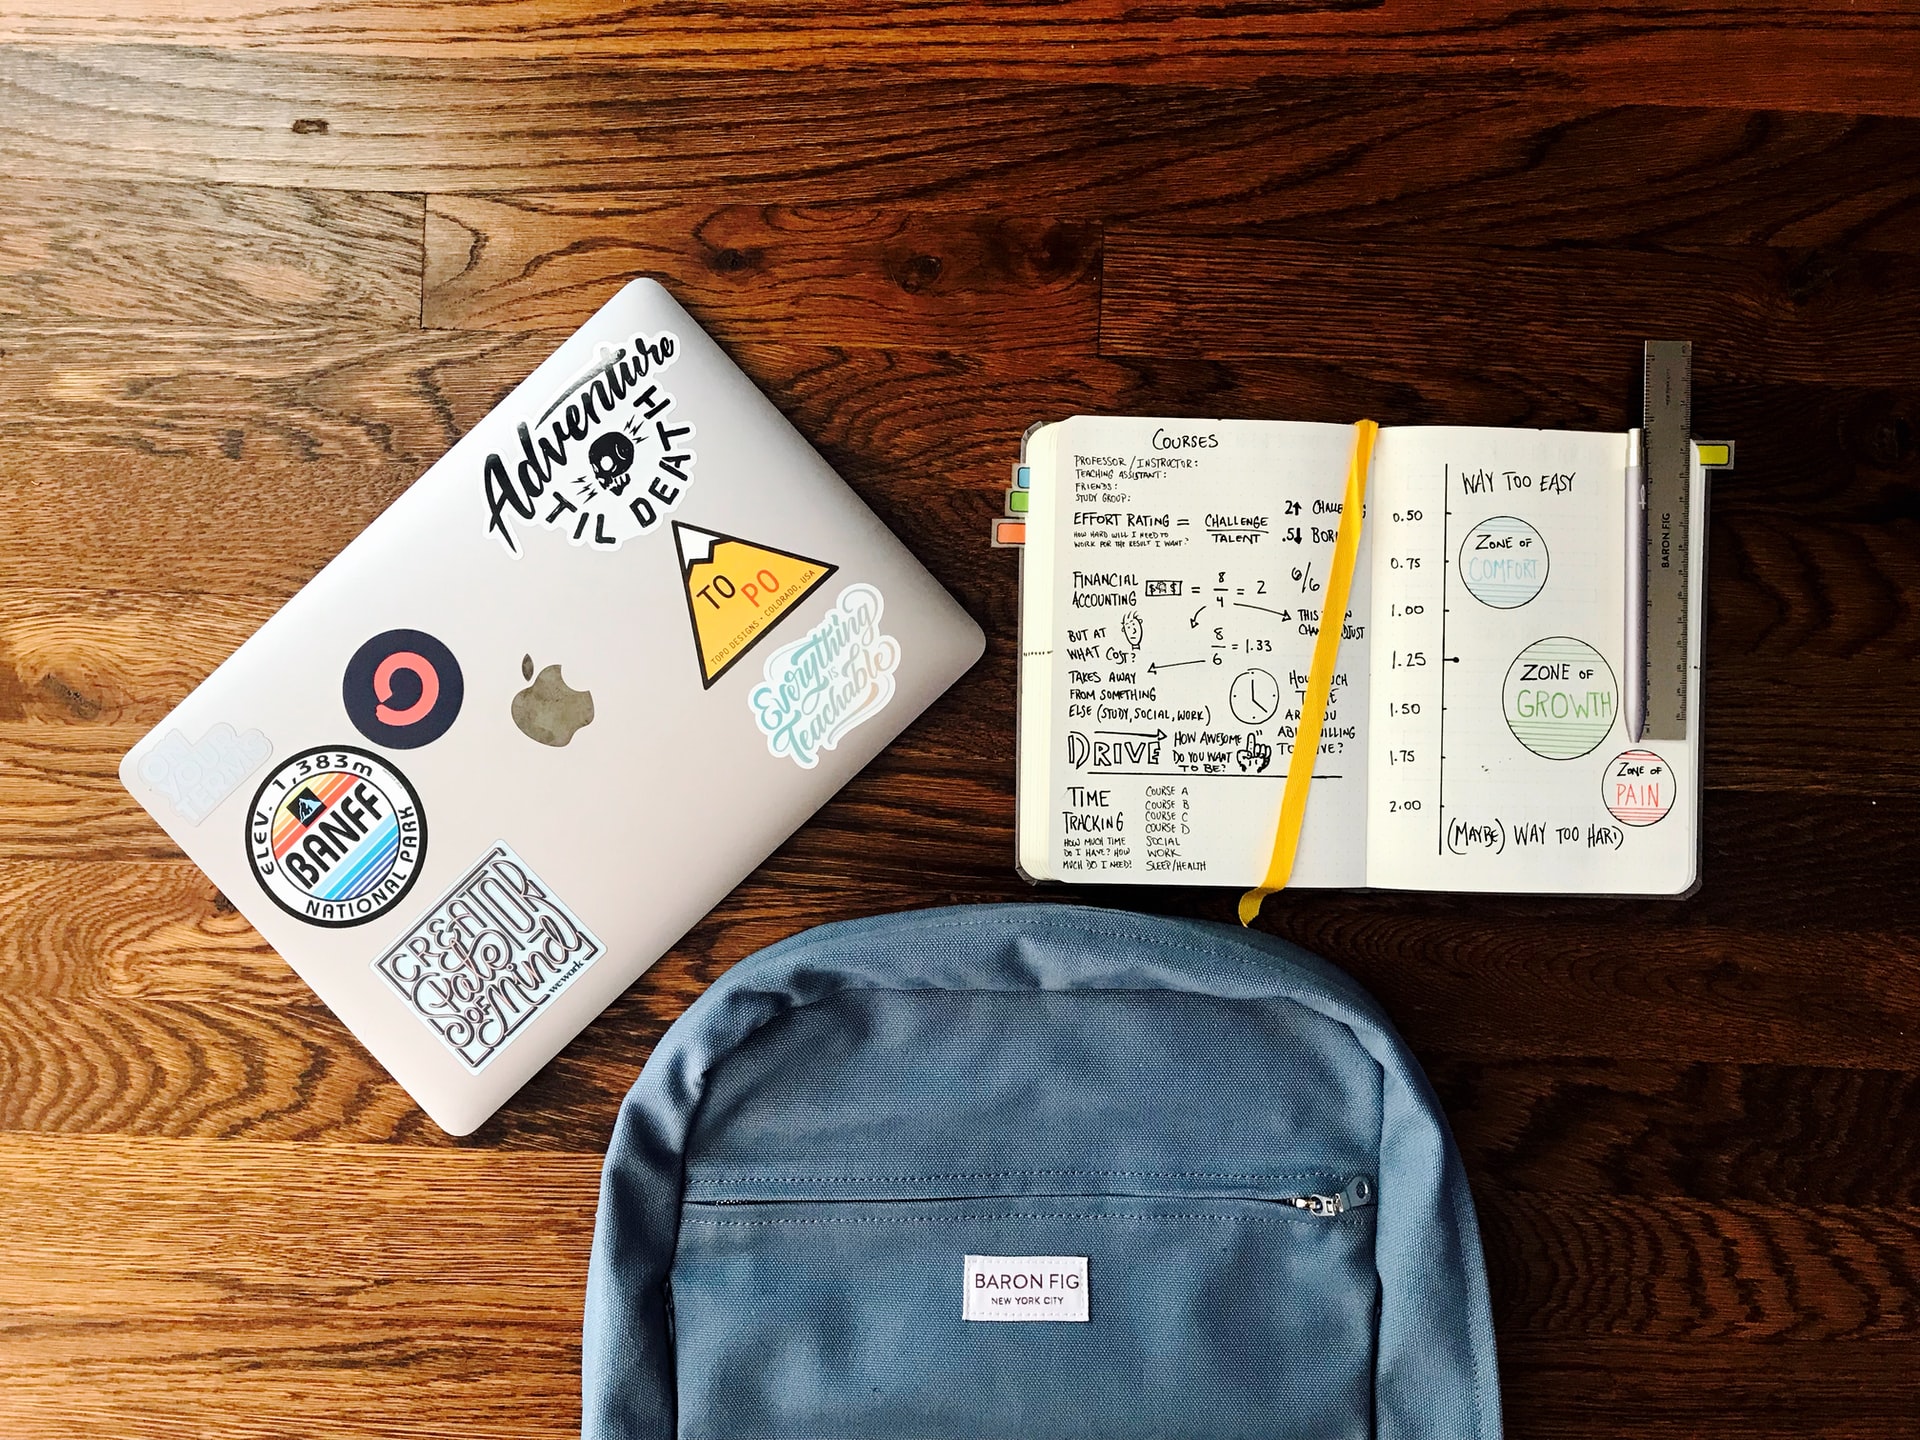 Adventure
TIL DEATH
TO PO
TOPO DESIGNS · COLORADO, USA
Everything
IS
Teachable
ON
YOUR
TERMS
ELEV. 1,383m
BANFF
NATIONAL PARK
CREATOR
State
OF
Mind
wework
COURSES
PROFESSOR / INSTRUCTOR:
TEACHING ASSISTANT:
FRIENDS:
STUDY GROUP:
EFFORT RATING = CHALLENGE
TALENT
HOW HARD WILL I NEED TO
WORK FOR THE RESULT I WANT?
2↑
.5↓
FINANCIAL
ACCOUNTING $$ = 8
4 = 2
6/6
THIS
BUT AT
WHAT COST?
8
6 = 1.33
TAKES AWAY
FROM SOMETHING
ELSE (STUDY, SOCIAL, WORK)
DRIVE
HOW AWESOME
DO YOU WANT
TO BE?
TIME
TRACKING
HOW MUCH TIME
DO I HAVE? HOW
MUCH DO I NEED?
COURSE A
COURSE B
COURSE C
COURSE D
SOCIAL
WORK
SLEEP/HEALTH
WAY TOO EASY
0.50
0.75
1.00
1.25
1.50
1.75
2.00
ZONE OF
COMFORT
ZONE OF
GROWTH
ZONE OF
PAIN
(MAYBE) WAY TOO HARD
BARON FIG
BARON FIG
NEW YORK CITY